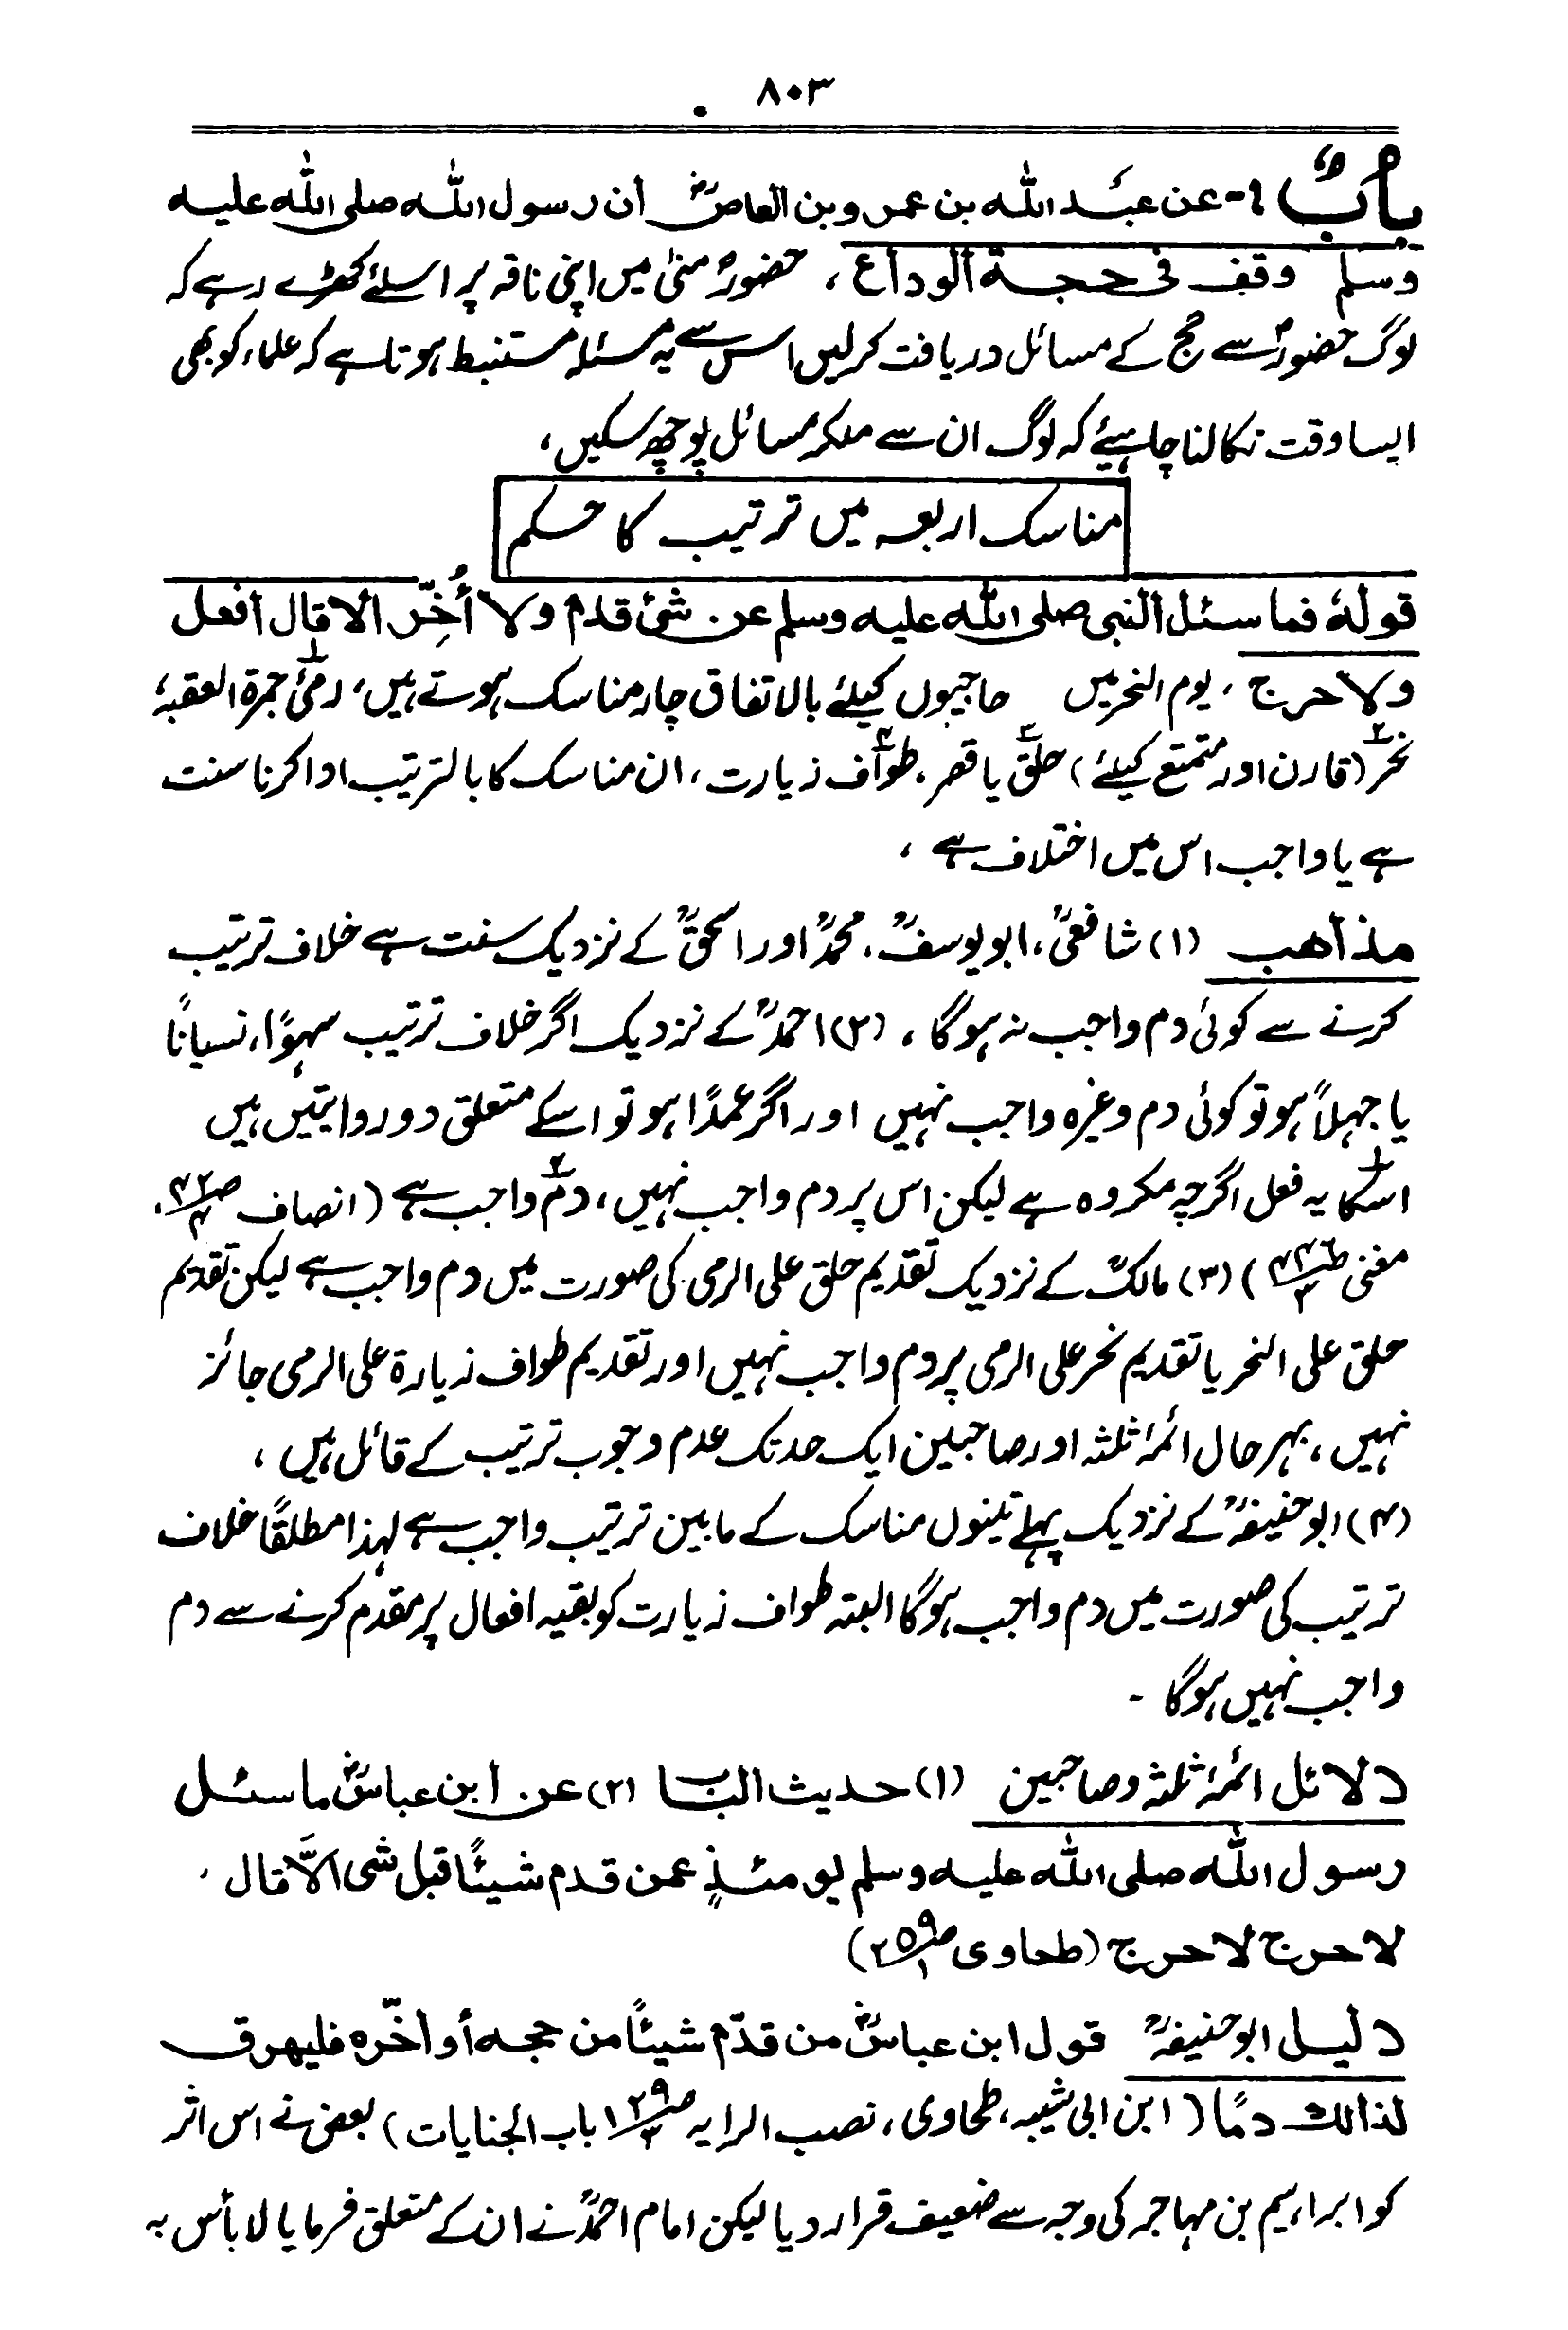 ۸۰۳
بابٌ ۱- عن عبد الله بن عمرو بن العاصؓ أن رسول الله صلى الله عليه
وسلم وقف فى حجة الوداع ، حضورؐ منیٰ میں اپنی ناقہ پر اسلئے کھڑے رہے کہ
لوگ حضورؐ سے حج کے مسائل دریافت کرلیں اس سے یہ مسئلہ مستنبط ہوتا ہے کہ علماء کو بھی
ایسا وقت نکالنا چاہیئے کہ لوگ ان سے ملکر مسائل پوچھ سکیں ،
مناسک اربعہ میں ترتیب کا حکم
قولهٗ فما سئل النبى صلى الله عليه وسلم عن شئ قدم ولا أُخِّر الا قال افعل
ولا حرج ، یوم النحر میں حاجیوں کیلئے بالاتفاق چار مناسک ہوتے ہیں ، ۱ رمئ جمرة العقبہ ،
۲ نحر (قارن اور متمتع کیلئے) ۳ حلق یا قصر ، ۴ طواف زیارت ، ان مناسک کا بالترتیب ادا کرنا سنت
ہے یا واجب اس میں اختلاف ہے ،
مذاهب (۱) شافعیؒ ، ابویوسفؒ ، محمدؒ اور اسحٰقؒ کے نزدیک سنت ہے خلاف ترتیب
کرنے سے کوئی دم واجب نہ ہوگا ، (۲) احمدؒ کے نزدیک اگر خلاف ترتیب سہوًا ، نسیانًا
یا جہلاً ہو تو کوئی دم وغیرہ واجب نہیں اور اگر عمدًا ہو تو اسکے متعلق دو روایتیں ہیں
۱ اسکا یہ فعل اگرچہ مکروہ ہے لیکن اس پر دم واجب نہیں ، ۲ دم واجب ہے (انصاف
مغنی) (۳) مالکؒ کے نزدیک تقدیم حلق علی الرمی کی صورت میں دم واجب ہے لیکن تقدیم
حلق علی النحر یا تقدیم نحر علی الرمی پر دم واجب نہیں اور تقدیم طواف زیارة علی الرمی جائز
نہیں ، بہر حال ائمۂ ثلٰثہ اور صاحبین ایک حد تک عدم وجوب ترتیب کے قائل ہیں ،
(۴) ابوحنیفہؒ کے نزدیک پہلے تینوں مناسک کے مابین ترتیب واجب ہے لہذا مطلقًا خلاف
ترتیب کی صورت میں دم واجب ہوگا البتہ طواف زیارت کو بقیہ افعال پر مقدم کرنے سے دم
واجب نہیں ہوگا ۔
دلائل ائمۂ ثلٰثہ وصاحبین (۱) حديث الباب (۲) عن ابن عباسؓ ما سئل
رسول الله صلى الله عليه وسلم يومئذٍ عمن قدم شيئًا قبل شى الاَّ قال ،
لا حرج لا حرج (طحاوى ص۲۵۹/۱)
دلیل ابوحنیفہؒ قول ابن عباسؓ من قدّم شيئًا من حجه أو أخّره فليهرق
لذالك دمًا (ابن ابی شیبہ ، طحاوی ، نصب الرایہ ص۱۲۹/۳ باب الجنایات) بعض نے اس اثر
کو ابراہیم بن مہاجر کی وجہ سے ضعیف قرار دیا لیکن امام احمدؒ نے ان کے متعلق فرمایا لا بأس بہ